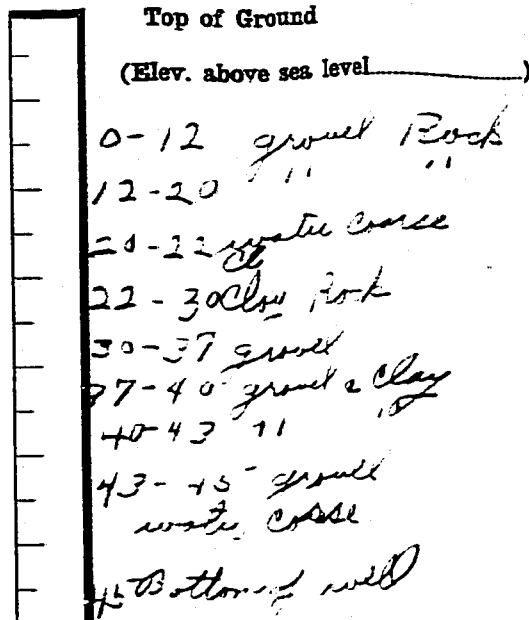 Top of Ground
(Elev. above sea level
)
0-12 grovel Rock
12-20 " "
20-22 water coarse
22-30 Clay Rock
30-37 grovel
37-40 grovel & Clay
40-43 " "
43-45 grovell
water coarse
45 Bottom of well